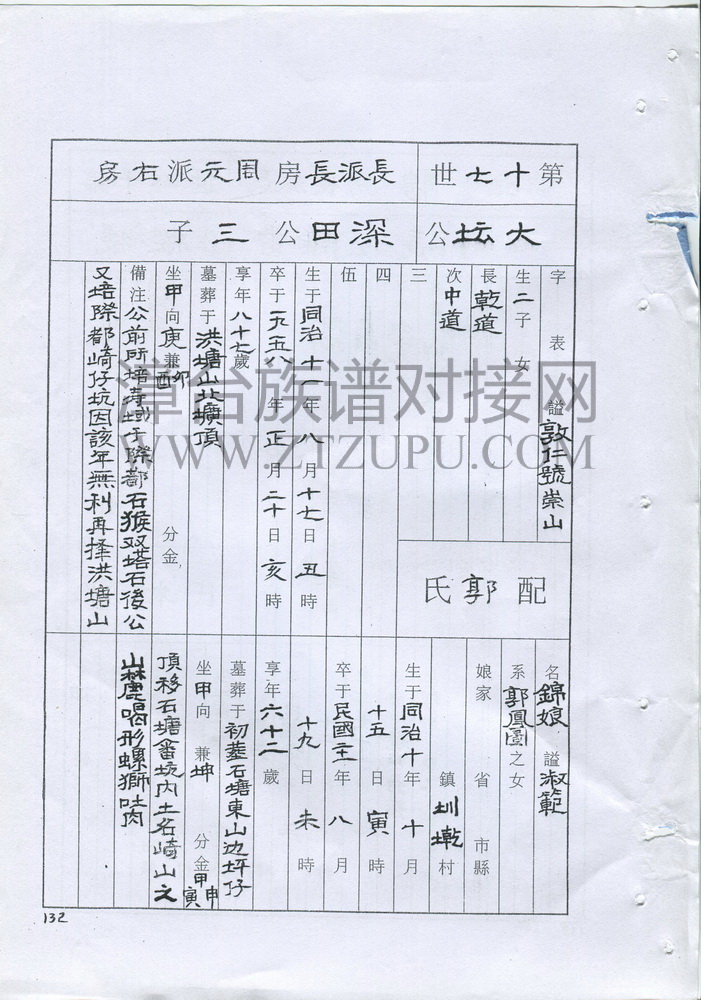 第十七世
長派長房周元派右房
大坛公
深田公三子
字 表 謚敦仁號崇山
生二子 女
長乾道
次中道
三
四
伍
生于同治十一年八月十七日丑時
卒于一九五八年正月二十日亥時
享年八十七歲
墓葬于洪塘山北壙頂
坐甲向庚兼卯酉 分金
備注公前所培寿域于際都石猴双塔石後公
又培際都崎仔坑因該年無利再择洪塘山
配郭氏
名錦娘 謚淑範
系郭鳳圖之女
娘家 省 市縣
鎮圳墘村
生于同治十年十月
十五日寅時
卒于民國二十一年八月
十九日未時
享年六十二歲
墓葬于初葬石塘東山边坪仔
坐甲向 兼坤 分金甲申寅
頂移石塘番坑内土名崎山之
山麓 形螺獅吐肉
漳台族谱对接网
WWW.ZTZUPU.COM
132